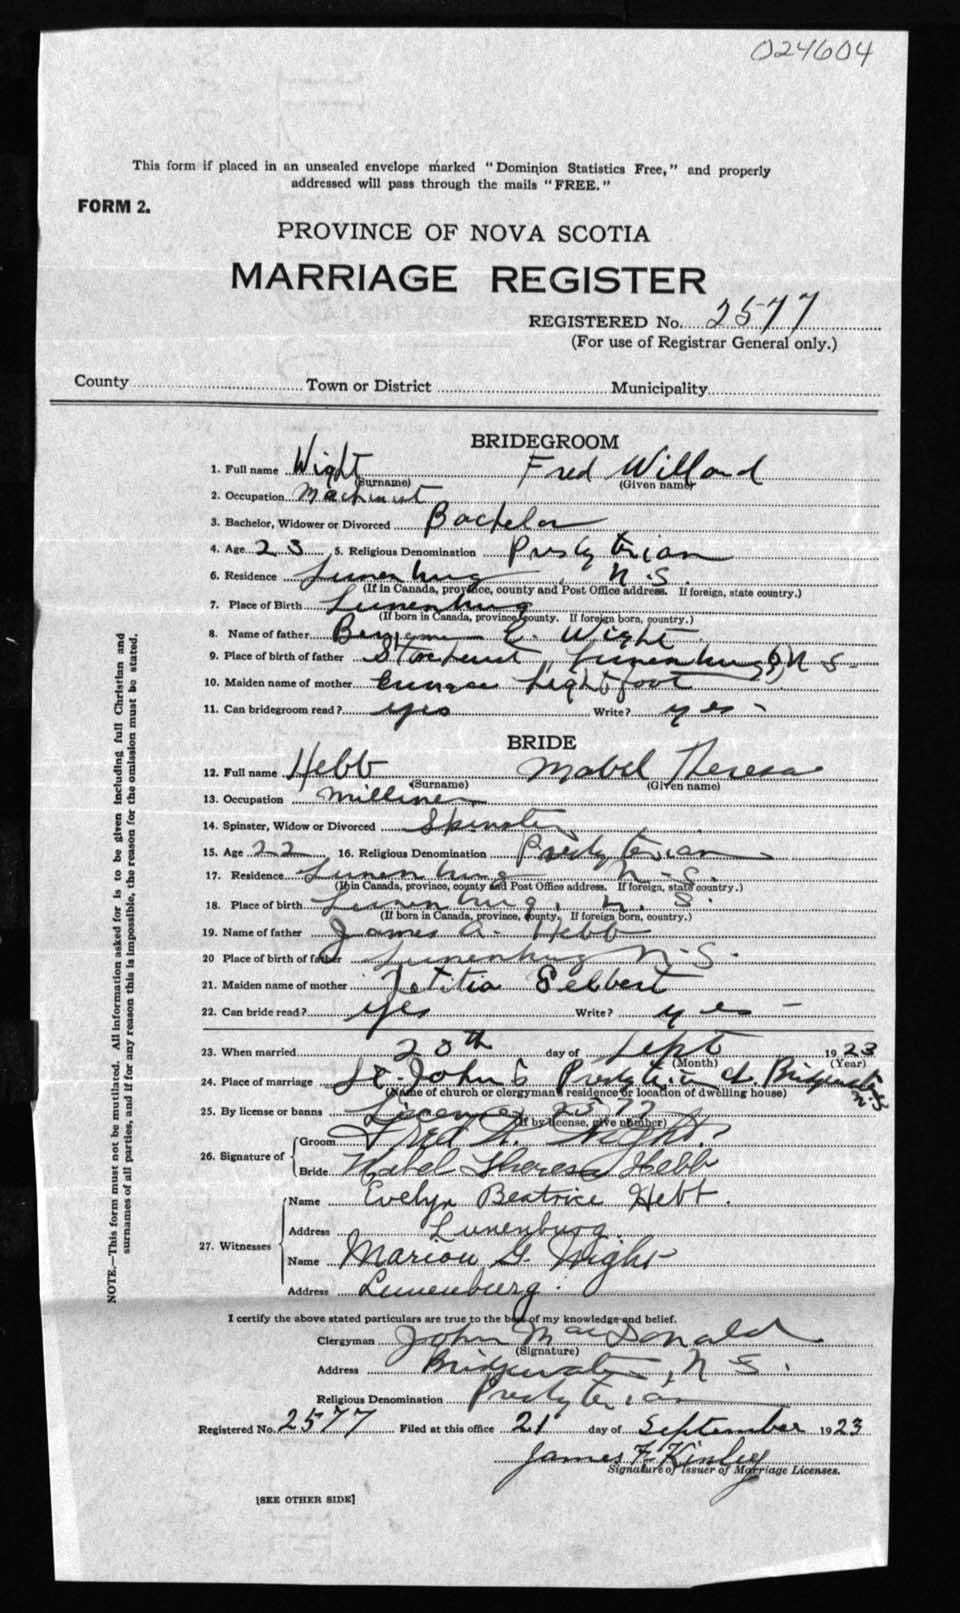 024604
This form if placed in an unsealed envelope marked "Dominion Statistics Free," and properly
addressed will pass through the mails "FREE."
FORM 2.
PROVINCE OF NOVA SCOTIA
MARRIAGE REGISTER
REGISTERED No. 2577
(For use of Registrar General only.)
County Town or District Municipality
BRIDEGROOM
1. Full name Wight Fred Willard
(Surname) (Given name)
2. Occupation Machinist
3. Bachelor, Widower or Divorced Bachelor
4. Age 23 5. Religious Denomination Presbyterian
6. Residence Lunenburg N.S.
(If in Canada, province, county and Post Office address. If foreign, state country.)
7. Place of Birth Lunenburg
(If born in Canada, province, county. If foreign born, country.)
8. Name of father C. Wight
9. Place of birth of father Lunenburg N S
10. Maiden name of mother Lightfoot
11. Can bridegroom read? yes Write? yes -
BRIDE
12. Full name Hebb Mabel Theresa
(Surname) (Given name)
13. Occupation Milliner
14. Spinster, Widow or Divorced Spinster
15. Age 22 16. Religious Denomination Presbyterian
17. Residence Lunenburg N.S.
(If in Canada, province, county and Post Office address. If foreign, state country.)
18. Place of birth Lunenburg, N.S.
(If born in Canada, province, county. If foreign born, country.)
19. Name of father James A. Hebb
20 Place of birth of father Lunenburg N.S.
21. Maiden name of mother Letitia
22. Can bride read? yes Write? yes -
23. When married 20th day of Sept 1923
(Month) (Year)
24. Place of marriage St. John's Presbyterian Ch. Bridgewater N.S
(Name of church or clergyman's residence or location of dwelling house)
25. By license or banns License 2577
(If by license, give number)
26. Signature of
Groom Fred W. Wight.
Bride Mabel Theresa Hebb
27. Witnesses
Name Evelyn Beatrice Hebb.
Address Lunenburg
Name Marion G. Wight
Address Lunenburg.
I certify the above stated particulars are true to the best of my knowledge and belief.
Clergyman John MacDonald
(Signature)
Address Bridgewater, N S.
Religious Denomination Presbyterian
Registered No. 2577 Filed at this office 21 day of September 1923
James F. Kinley
Signature of Issuer of Marriage Licenses.
[SEE OTHER SIDE]
NOTE.—This form must not be mutilated. All information asked for is to be given including full Christian and
surnames of all parties, and if for any reason this is impossible, the reason for the omission must be stated.